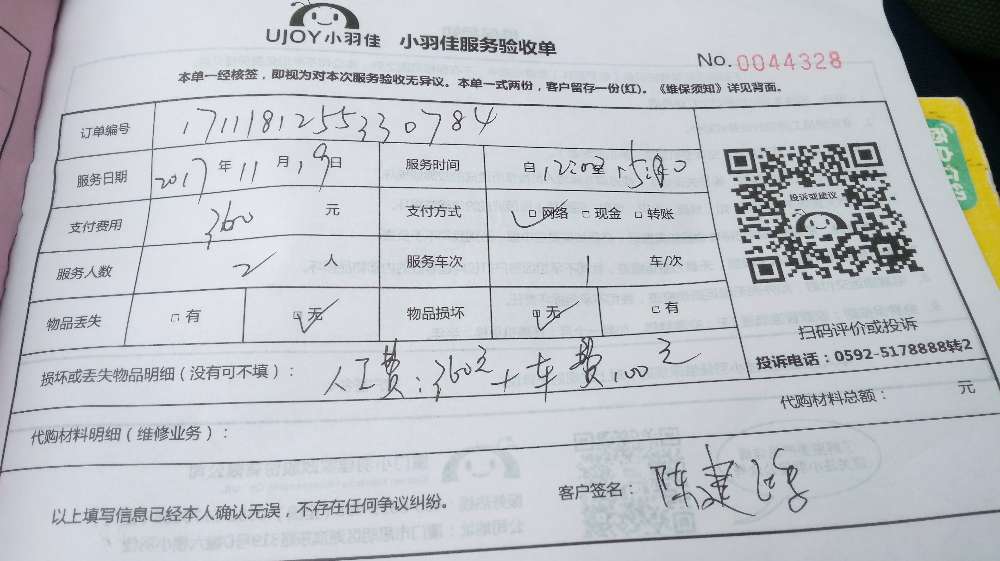 UJOY小羽佳 小羽佳服务验收单
No. 0044328
本单一经核签，即视为对本次服务验收无异议。本单一式两份，客户留存一份(红)。《维保须知》详见背面。
订单编号 1711181255330784
服务日期 2017年11月19日 服务时间 自
支付费用 360 元 支付方式 网络 现金 转账
投诉或建议
服务人数 2 人 服务车次 1 车/次
物品丢失 有 无 物品损坏 无 有
扫码评价或投诉
投诉电话：0592-5178888转2
损坏或丢失物品明细（没有可不填）： 人工费：360元＋车费100元
代购材料明细（维修业务）： 代购材料总额： 元
以上填写信息已经本人确认无误，不存在任何争议纠纷。 客户签名： 陈建